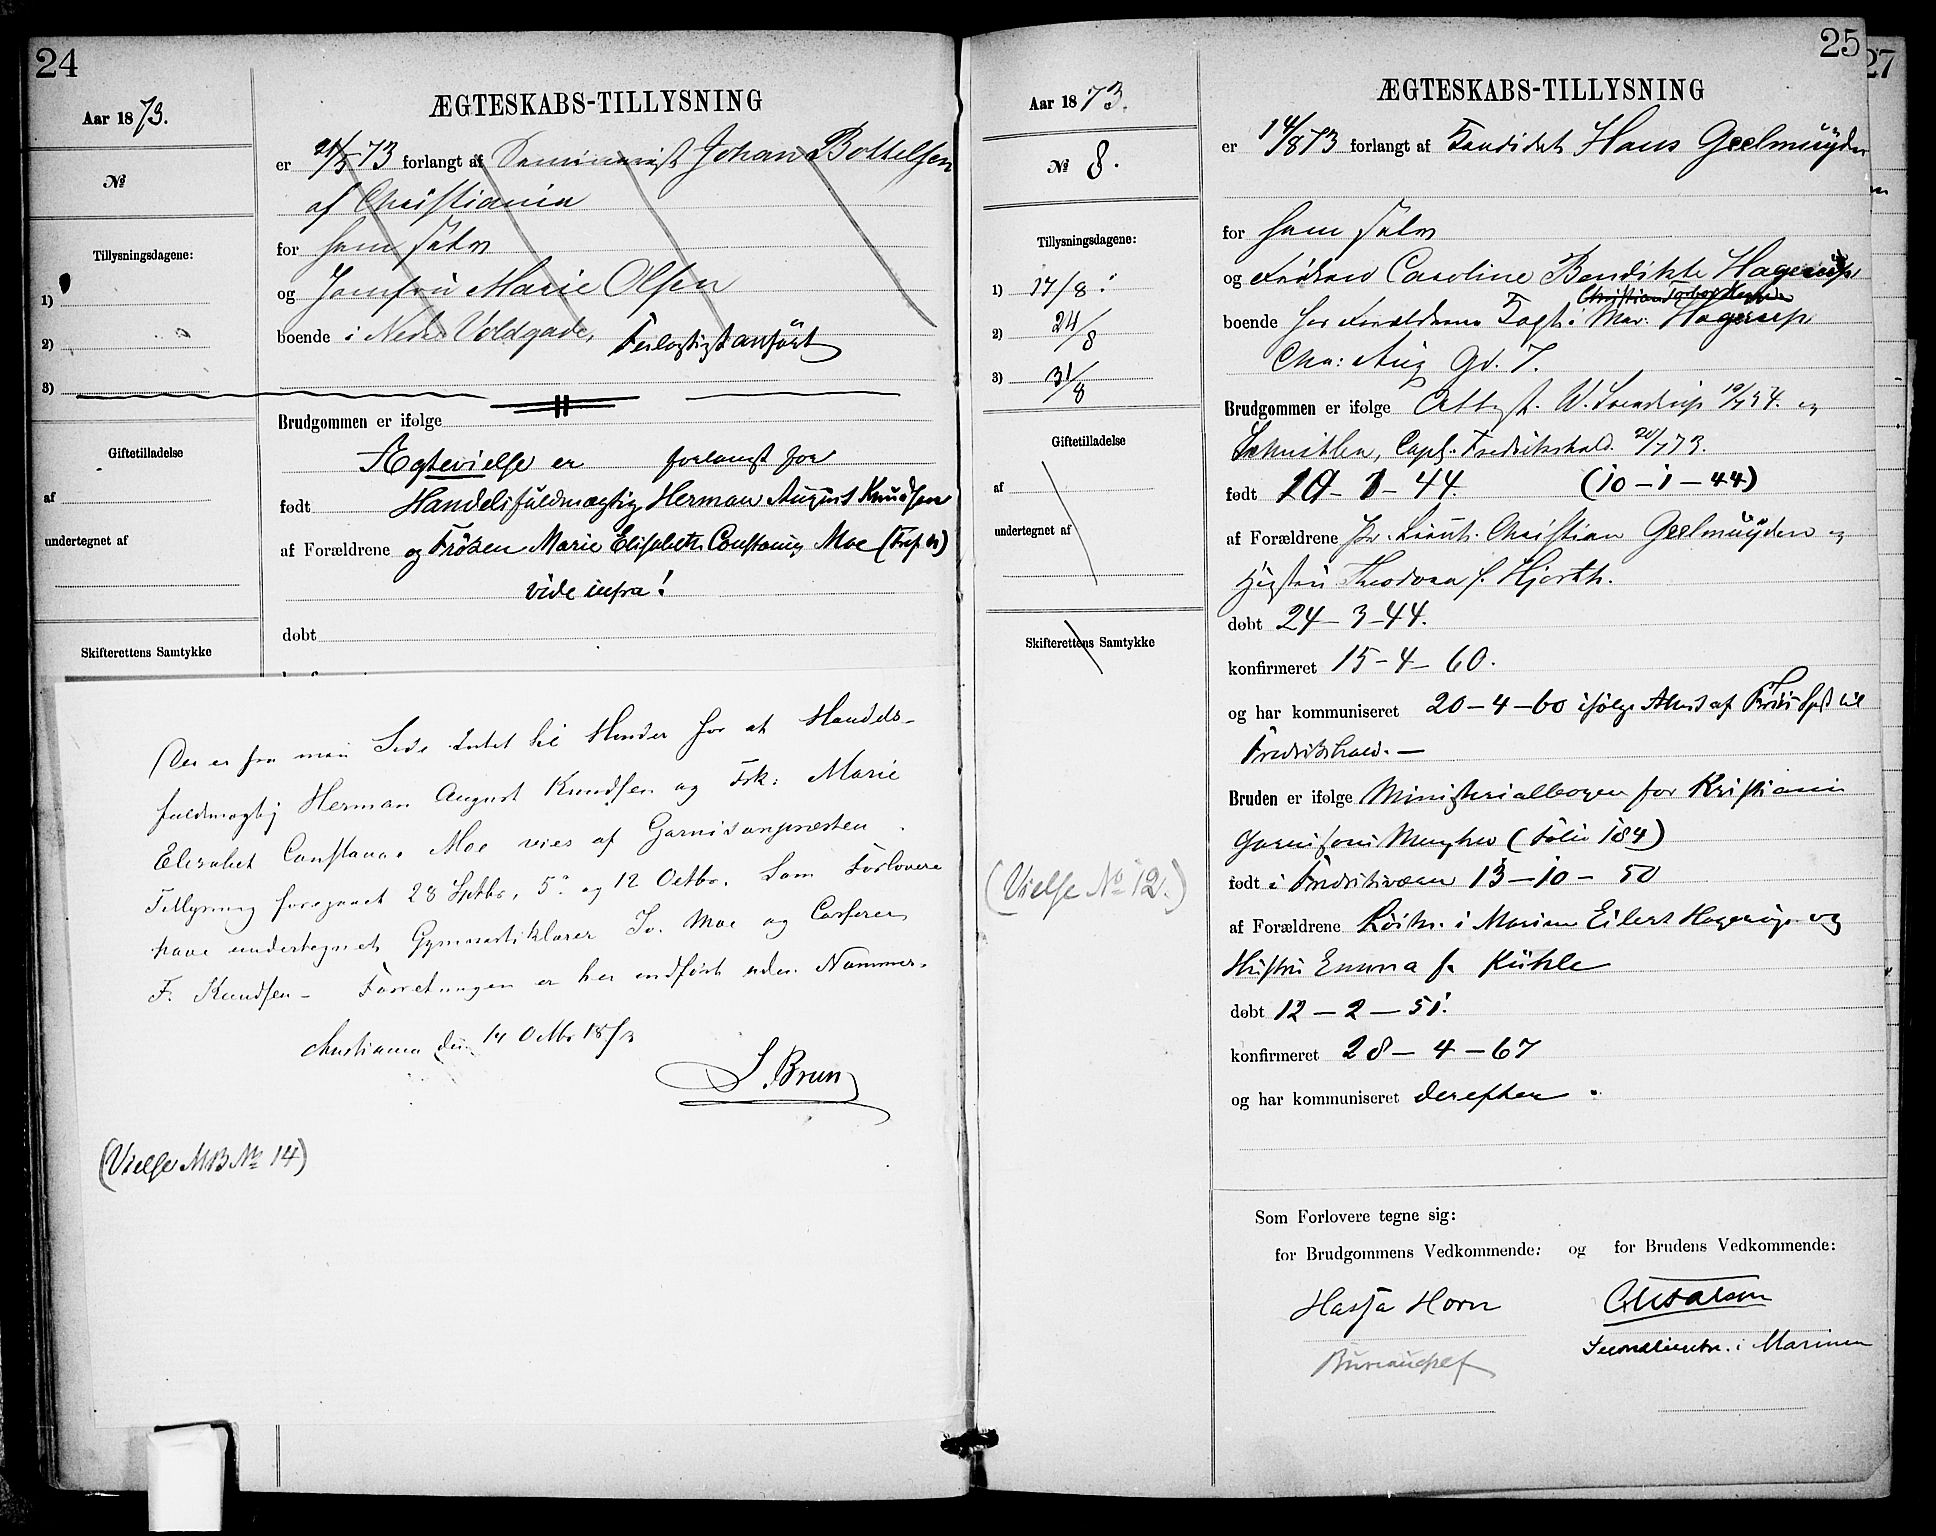 24
Aar 1873.
№
Tillysningsdagene:
1)
2)
3)
Giftetilladelse
af
undertegnet af
Skifterettens Samtykke
ÆGTESKABS-TILLYSNING
er 21/5 73 forlangt af Seminarist Johan Bottelsen
af Christiania
for ham selv
og Jomfru Marie Olsen
boende i Nedr Voldgade, Feilagtigt anført
Brudgommen er ifølge
Ægtevielse er forlangt for
født Handelsfuldmægtig Herman August Knudsen
af Forældrene og Frøken Marie Elisabeth Constance Moe
vide infra!
døbt
Der er fra min Side Intet til Hinder for at Handels-
fuldmægtig Herman August Knudsen og Frk: Marie
Elisabet Constance Moe vies af Garnisonspræsten.
Tillysning foregaaet 28 Septbr, 5 og 12 Octbr. Som Forlovere
have undertegnet Gymnastiklærer Jo. Moe og
F. Knudsen – Forretningen er her indført uden Nummer.
Christiania den 14 Octbr 1873
S. Brun
(Vielse MB № 14)
25
27
Aar 1873.
№ 8.
Tillysningsdagene:
1) 17/8
2) 24/8
3) 31/8
Giftetilladelse
af
undertegnet af
Skifterettens Samtykke
(Vielse No 12.)
ÆGTESKABS-TILLYSNING
er 14/8 73 forlangt af Kandidat Hans Geelmuyden
for ham selv
og Frøken Caroline Bendikte Hagerup
boende hos Forældrene Hagerup
Chr: Aug Gd. 7.
Brudgommen er ifølge Attest. W. og
Capl. Fredrikshald. 20/7 73.
født 10-1-44. (10-1-44)
af Forældrene Pr. Lieut. Christian Geelmuyden og
Hustru Theodora f. Hjorth.
døbt 24-3-44.
konfirmeret 15-4-60.
og har kommuniseret 20-4-60 ifølge Attest af til
Fredrikshald. –
Bruden er ifølge Ministerialbogen for Kristiania
Garnisons Menighed (Folio 184)
født i Fredriksværn 13-10-50
af Forældrene i Marinen Eilert Hagerup og
Hustru Emma f. Kühle
døbt 12-2-51.
konfirmeret 28-4-67
og har kommuniseret derefter.
Som Forlovere tegne sig:
for Brudgommens Vedkommende: og for Brudens Vedkommende:
Horn
Bureauchef
Secondlieutn. i Marinen